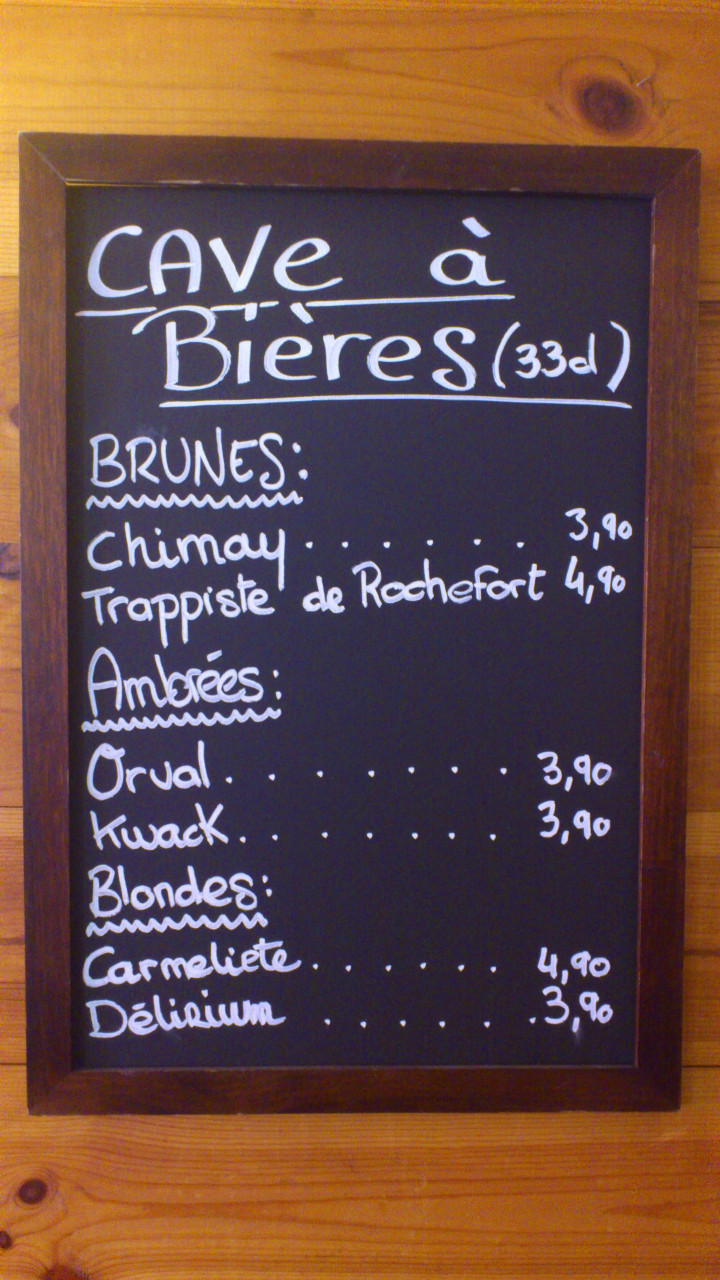 CAVe à
Bières (33cl)
BRUNES:
Chimay . . . . . . 3,90
Trappiste de Rochefort 4,90
Ambrées:
Orval . . . . . . . 3,90
Kwack . . . . . . . 3,90
Blondes:
Carmeliete . . . . . . 4,90
Délirium . . . . . . 3,90